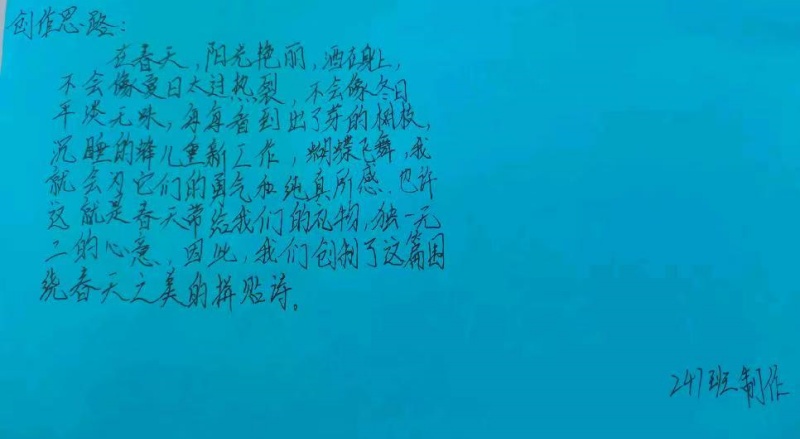 创作思路：
在春天，阳光艳丽，洒在身上，
不会像夏日太过热裂，不会像冬日
平淡无味，每每看到出了芽的树枝，
沉睡的蜂儿重新工作，蝴蝶飞舞，我
就会为它们的勇气和纯真所感.也许
这就是春天带给我们的礼物，独一无
二的心意，因此，我们创制了这篇围
绕春天之美的拼贴诗。
241班制作